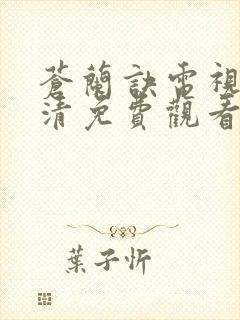 蒼蘭訣電視
清免費觀看
葉子忻